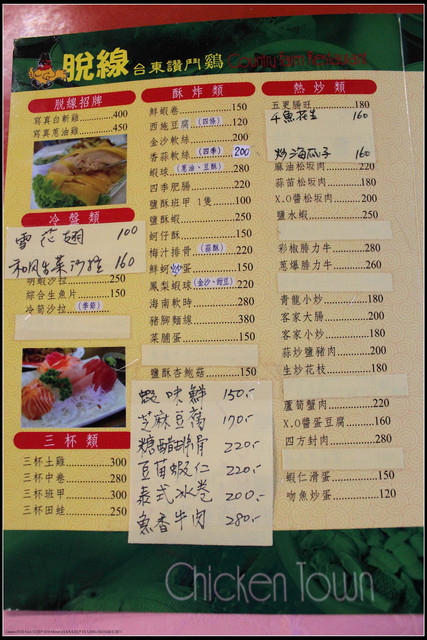 脫線 台東讚鬥鷄 Country Farm Restaurant
脫線招牌
寫真白斬雞 400
寫真蔥油雞 450
冷盤類
雪花翅 100
和風生菜沙拉 160
明蝦沙拉 250
綜合生魚片 150
冷筍沙拉(季節)
三杯類
三杯土雞 300
三杯中卷 280
三杯班甲 300
三杯田蛙 250
酥炸類
鮮蝦卷 150
西施豆腐(四條) 120
金沙軟絲 200
香蒜軟絲(四季) 200
蝦球(蔥油、豆酥) 280
四季肥腸 220
鹽酥班甲1隻 100
鹽酥蝦 250
蚵仔酥 150
梅汁排骨(蒜酥) 220
鮮蚵炒蛋 150
鳳梨蝦球(金沙、甜豆) 220
海南軟時 280
豬腳麵線 380
菜脯蛋 150
鹽酥杏鮑菇 150
蝦味鮮 150.-
芝麻豆腐 170.-
糖醋排骨 220.-
豆苗蝦仁 220.-
泰式冰卷 200.-
魚香牛肉 280.-
熱炒類
五更腸旺 180
干魚花生 160
炒海瓜子 160
麻油松坂肉 220
蒜苗松坂肉 180
X.O醬松坂肉 200
鹽水蝦 250
彩椒勝力牛 280
蔥爆勝力牛 260
青龍小炒 180
客家大腸 200
客家小炒 180
蒜炒鹽豬肉 200
生炒花枝 180
蘆筍蟹肉 220
X.O醬蛋豆腐 160
四方封肉 280
蝦仁滑蛋 150
吻魚炒蛋 120
Chicken Town